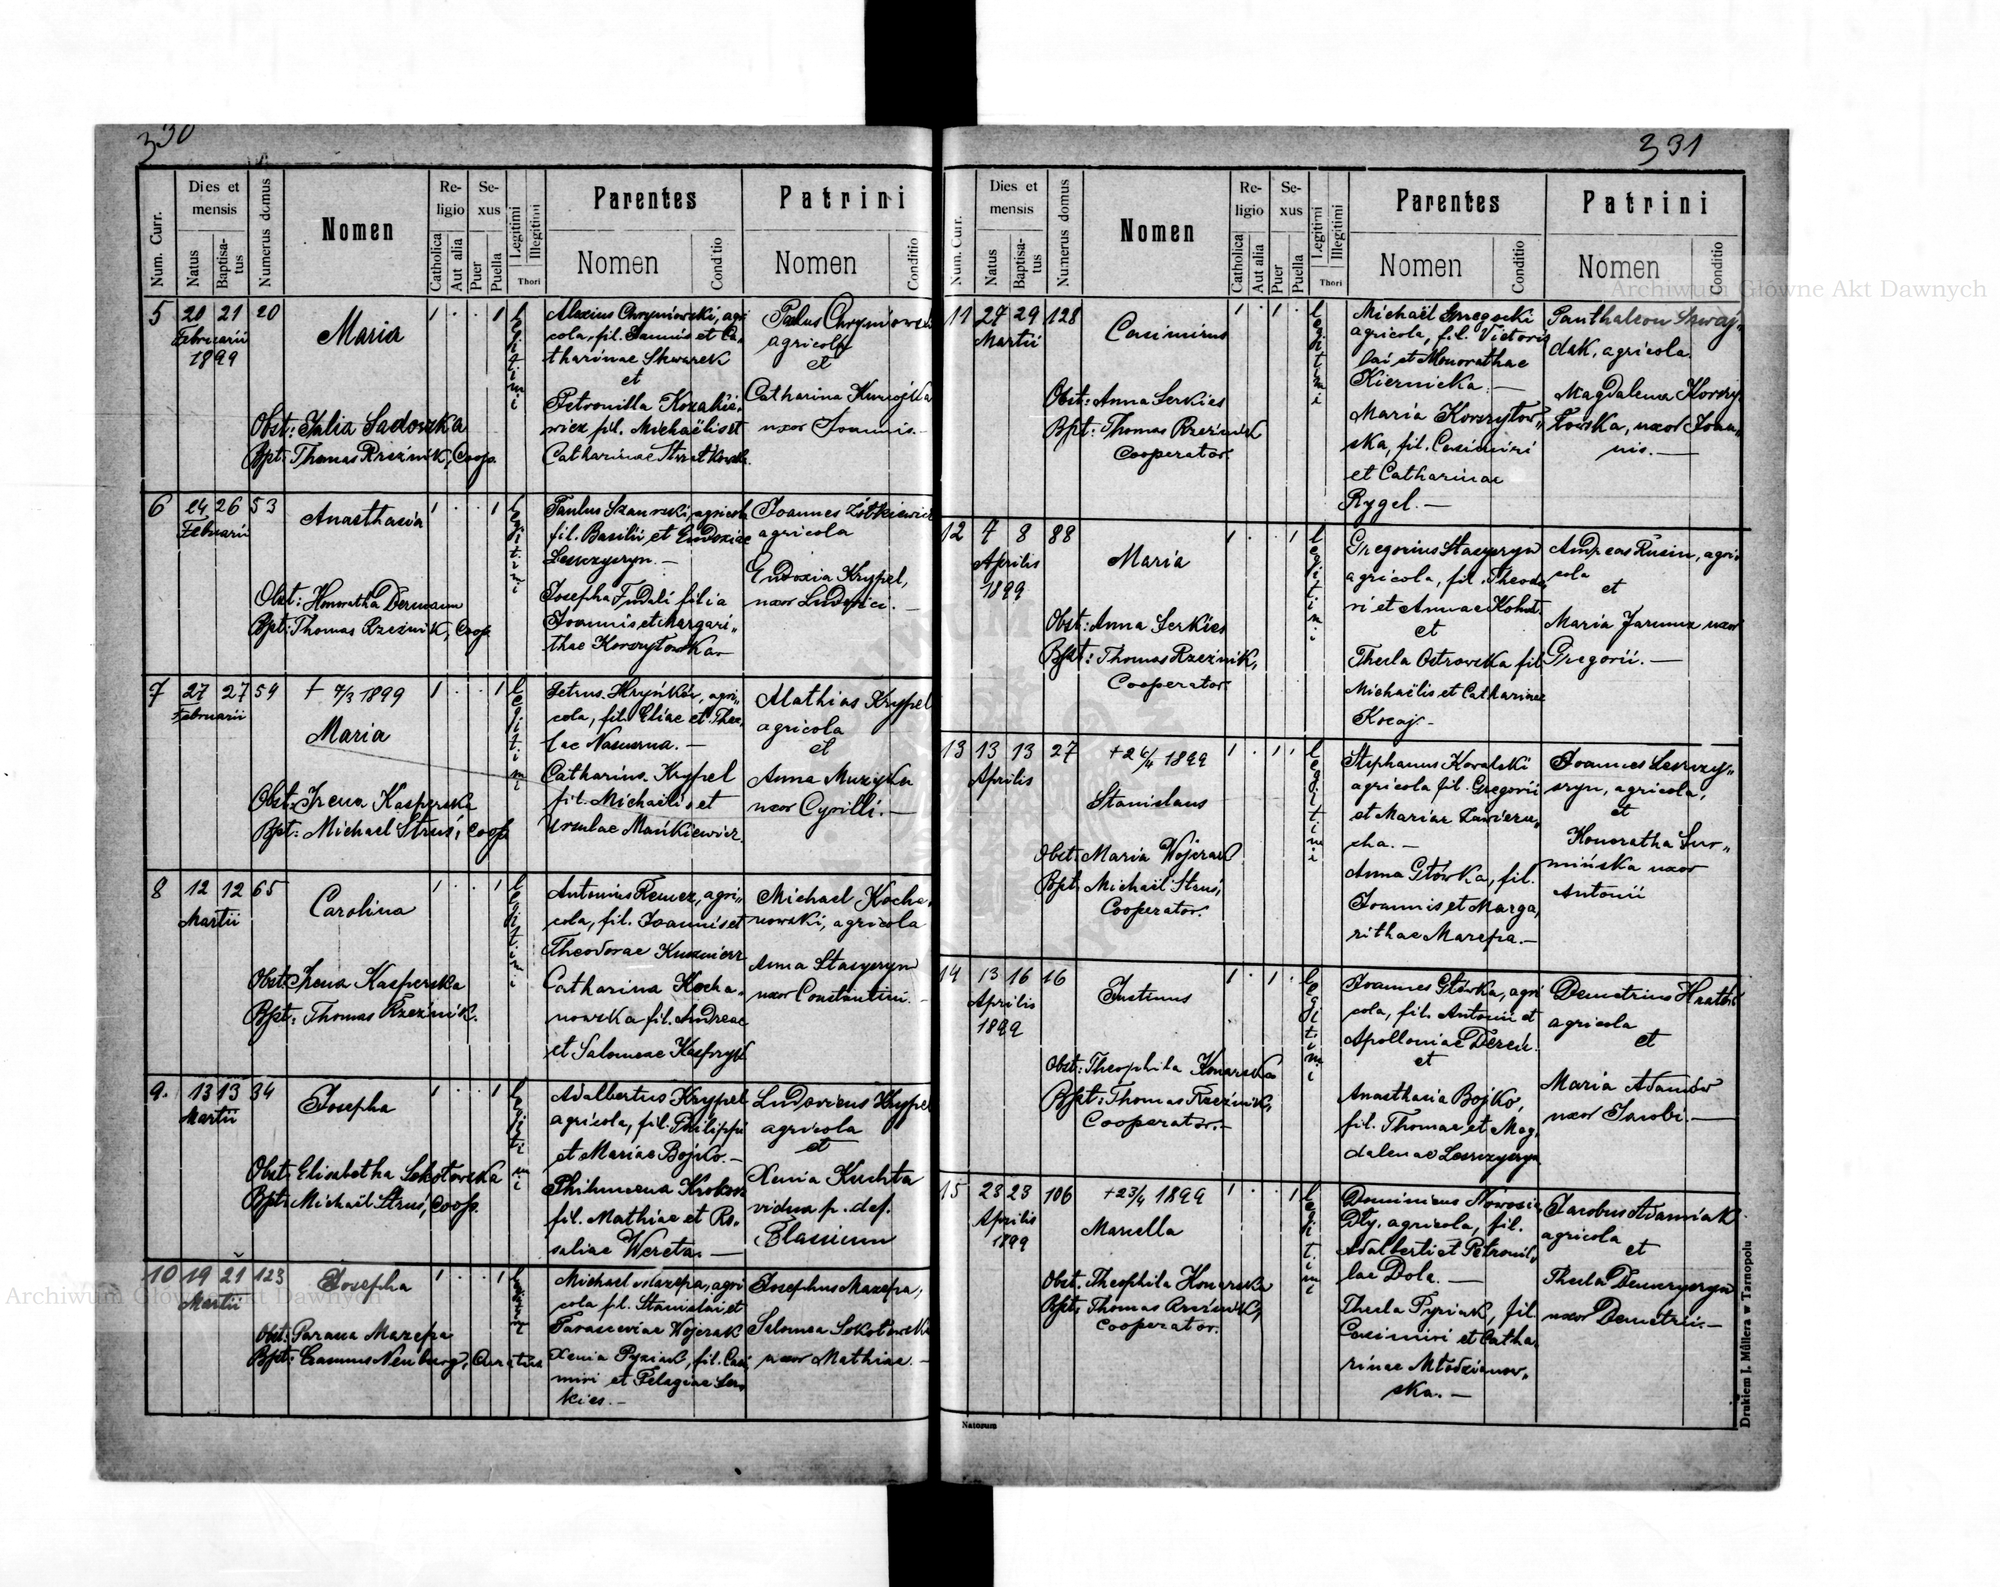 330
Num. Curr.
Dies et mensis
Natus
Baptisatus
Numerus domus
Nomen
Religio
Catholica
Aut alia
Sexus
Puer
Puella
Legitimi
Illegitimi
Thori
Parentes
Nomen
Conditio
Patrini
Nomen
Conditio
5 20 21 20
Februarii
1899
Maria
1 . . 1
legitimi
Obst: Julia Sadowska
Bpt: Thomas Rzeźnik, Coop.
Alexius Chryniowski, agri
cola, fil. Joannis et Ca
tharinae Skwarek
et
Petronilla Kozakie
wicz fil. Michaëlis et
Catharinae
Paulus Chryniowski
agricola
et
Catharina
uxor Joannis.-
6 24 26 53
Februarii
Anasthasia
1 . . 1
legitimi
Obst: Honoratha Dermann
Bpt: Thomas Rzeźnik, Coop
Paulus agricola
fil. Basilii et Eudoxiae
Leszczyszyn.-
Josepha Fudali filia
Joannis et Margari„
thae Korczytowska
Joannes Żółkiewicz
agricola
Eudoxia Krypel,
uxor Ludovici.-
7 27 27 54
Februarii
+ 7/3 1899
Maria
1 . . 1
legitimi
Obst: Irena Kasperska
Bpt: Michael Struś, Coop
Petrus Hryńków, agri„
cola, fil. Eliae et Thec
lae -
Catharina Krypel
fil. Michaëlis et
Ursulae Mańkiewicz.
Mathias Krypel
agricola
et
Anna Muzyka
uxor Cyrilli.-
8 12 12 65
Martii
Carolina
1 . . 1
legitimi
Obst: Irena Kasperska
Bpt: Thomas Rzeźnik.
Antonius Remez, agri„
cola, fil. Joannis et
Theodorae Kusznierz
Catharina Kocha„
nowska fil. Andreae
et Salomeae Kasprzyk
Michael Kocha„
nowski, agricola
Anna Stasyszyn
uxor Constantini.-
9. 13 13 34
Martii
Josepha
1 . . 1
legitimi
Obst: Elisabetha Sokołowska
Bpt: Michaël Struś, Coop.
Adalbertus Krypel
agricola, fil. Philippi
et Mariae Bojko.-
Philumena
fil. Mathiae et Ro„
saliae Wereta.-
Ludovicus Krypel
agricola
et
Xenia Kuchta
vidua p. def.
Blasium
10 19 21 123
Martii
Josepha
1 . . 1
legitimi
Obst: Parana Mazepa
Bpt: Erasmus Neuburg, Curatus
Michael Mazepa, agri
cola fil. Stanislai et
Parasceviae Wojczak
Xenia Pyziak, fil. Casi
miri et Pelagiae Ser„
kies.-
Josephus Mazepa,
Salomea Sokołowska
uxor Mathiae.-
331
Num. Curr.
Dies et mensis
Natus
Baptisatus
Numerus domus
Nomen
Religio
Catholica
Aut alia
Sexus
Puer
Puella
Legitimi
Illegitimi
Thori
Parentes
Nomen
Conditio
Patrini
Nomen
Conditio
11 27 29 128
Martii
Casimirus
1 . 1 .
legitimi
Obst: Anna Serkies
Bpt: Thomas Rzeźnik
Cooperator.
Michaël
agricola, fil.
et Honorathae
Kiernicka.-
Maria Korczytow„
ska, fil. Casimiri
et Catharinae
Rygel.-
Panthaleon Szwaj„
dak, agricola.
Magdalena Korczy„
towska, uxor Joan„
nis.-
12 7 8 88
Aprilis
1899
Maria
1 . . 1
legitimi
Obst: Anna Serkies
Bpt: Thomas Rzeźnik,
Cooperator
Gregorius Stasyszyn
agricola, fil. Theodo
ri et Annae Kohut
et
Thecla Ostrowska fil
Michaëlis et Catharinae
Kocaj.-
Andreas Rusin, agri„
cola
et
Maria uxor
Gregorii.-
13 13 13 27
Aprilis
+26/4 1899
Stanislaus
1 . 1 .
legitimi
Obst: Maria Wojczak
Bpt: Michaël Struś,
Cooperator.
Stephanus Kowalski
agricola fil. Gregorii
et Mariae Zawieru„
cha.-
Anna Główka, fil.
Joannis et Marga„
rithae Mazepa.-
Joannes Leszczy„
szyn, agricola,
et
Honoratha Sur„
mińska uxor
Antonii
14 13 16 16
Aprilis
1899
Justinus
1 . 1 .
legitimi
Obst: Theophila Konarska
Bpt: Thomas Rzeźnik,
Cooperator.-
Joannes Główka, agri
cola, fil. Antonii et
Apolloniae Derech
et
Anasthasia Bojko,
fil. Thomae et Mag„
dalenae Leszczyszyn
Demetrius
agricola
et
Maria Adamów
uxor Jacobi.-
15 23 23 106
Aprilis
1899
+23/4 1899
Marcella
1 . . 1
legitimi
Obst: Theophila Konarska
Bpt: Thomas Rzeźnik,
Cooperator.
Dominicus Nowosia„
dły, agricola, fil.
Adalberti et Petronil„
lae Dola.-
Thecla Pyziak, fil.
Casimiri et Catha„
rinae Młodzianow„
ska.-
Jacobus Adamiak
agricola
et
Thecla Demczyszyn
uxor Demetrii.-
Natorum
Drukiem J. Müllera w Tarnopolu
Archiwum Główne Akt Dawnych
Archiwum Główne Akt Dawnych